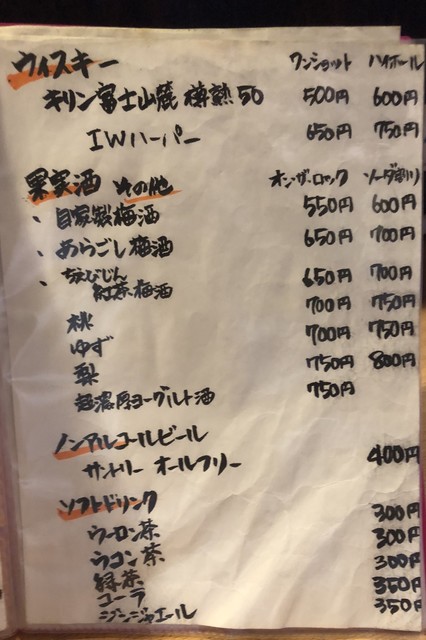 ウィスキー ワンショット ハイボール
キリン富士山麓 樽熟50 500円 600円
IWハーパー 650円 750円
果実酒 その他 オン・ザ・ロック ソーダ割り
、自家製梅酒 550円 600円
、あらごし梅酒 650円 700円
、ちえびじん
紅茶梅酒 650円 700円
桃 700円 750円
ゆず 700円 750円
梨 750円 800円
超濃厚ヨーグルト酒 750円
ノンアルコールビール
サントリー オールフリー 400円
ソフトドリンク
ウーロン茶 300円
ウコン茶 300円
緑茶 300円
コーラ 350円
ジンジャエール 350円